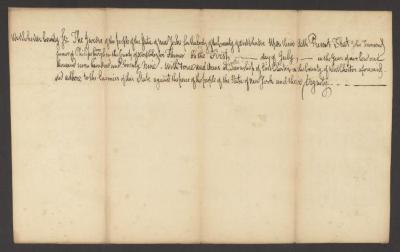 Westchester County Ss. The Jurors of the people of the State of New York for the body of the County of Westchester Upon their Oath Present That
of Philipsburgh in the County of Westchester on the First day of July in the Year of our Lord one
thousand seven hundred and Seventy Nine, with force and arms at the Township of in the County of Westchester aforesaid
did adhere to the Enemies of this State against the peace of the people of the State of New York and their Dignity